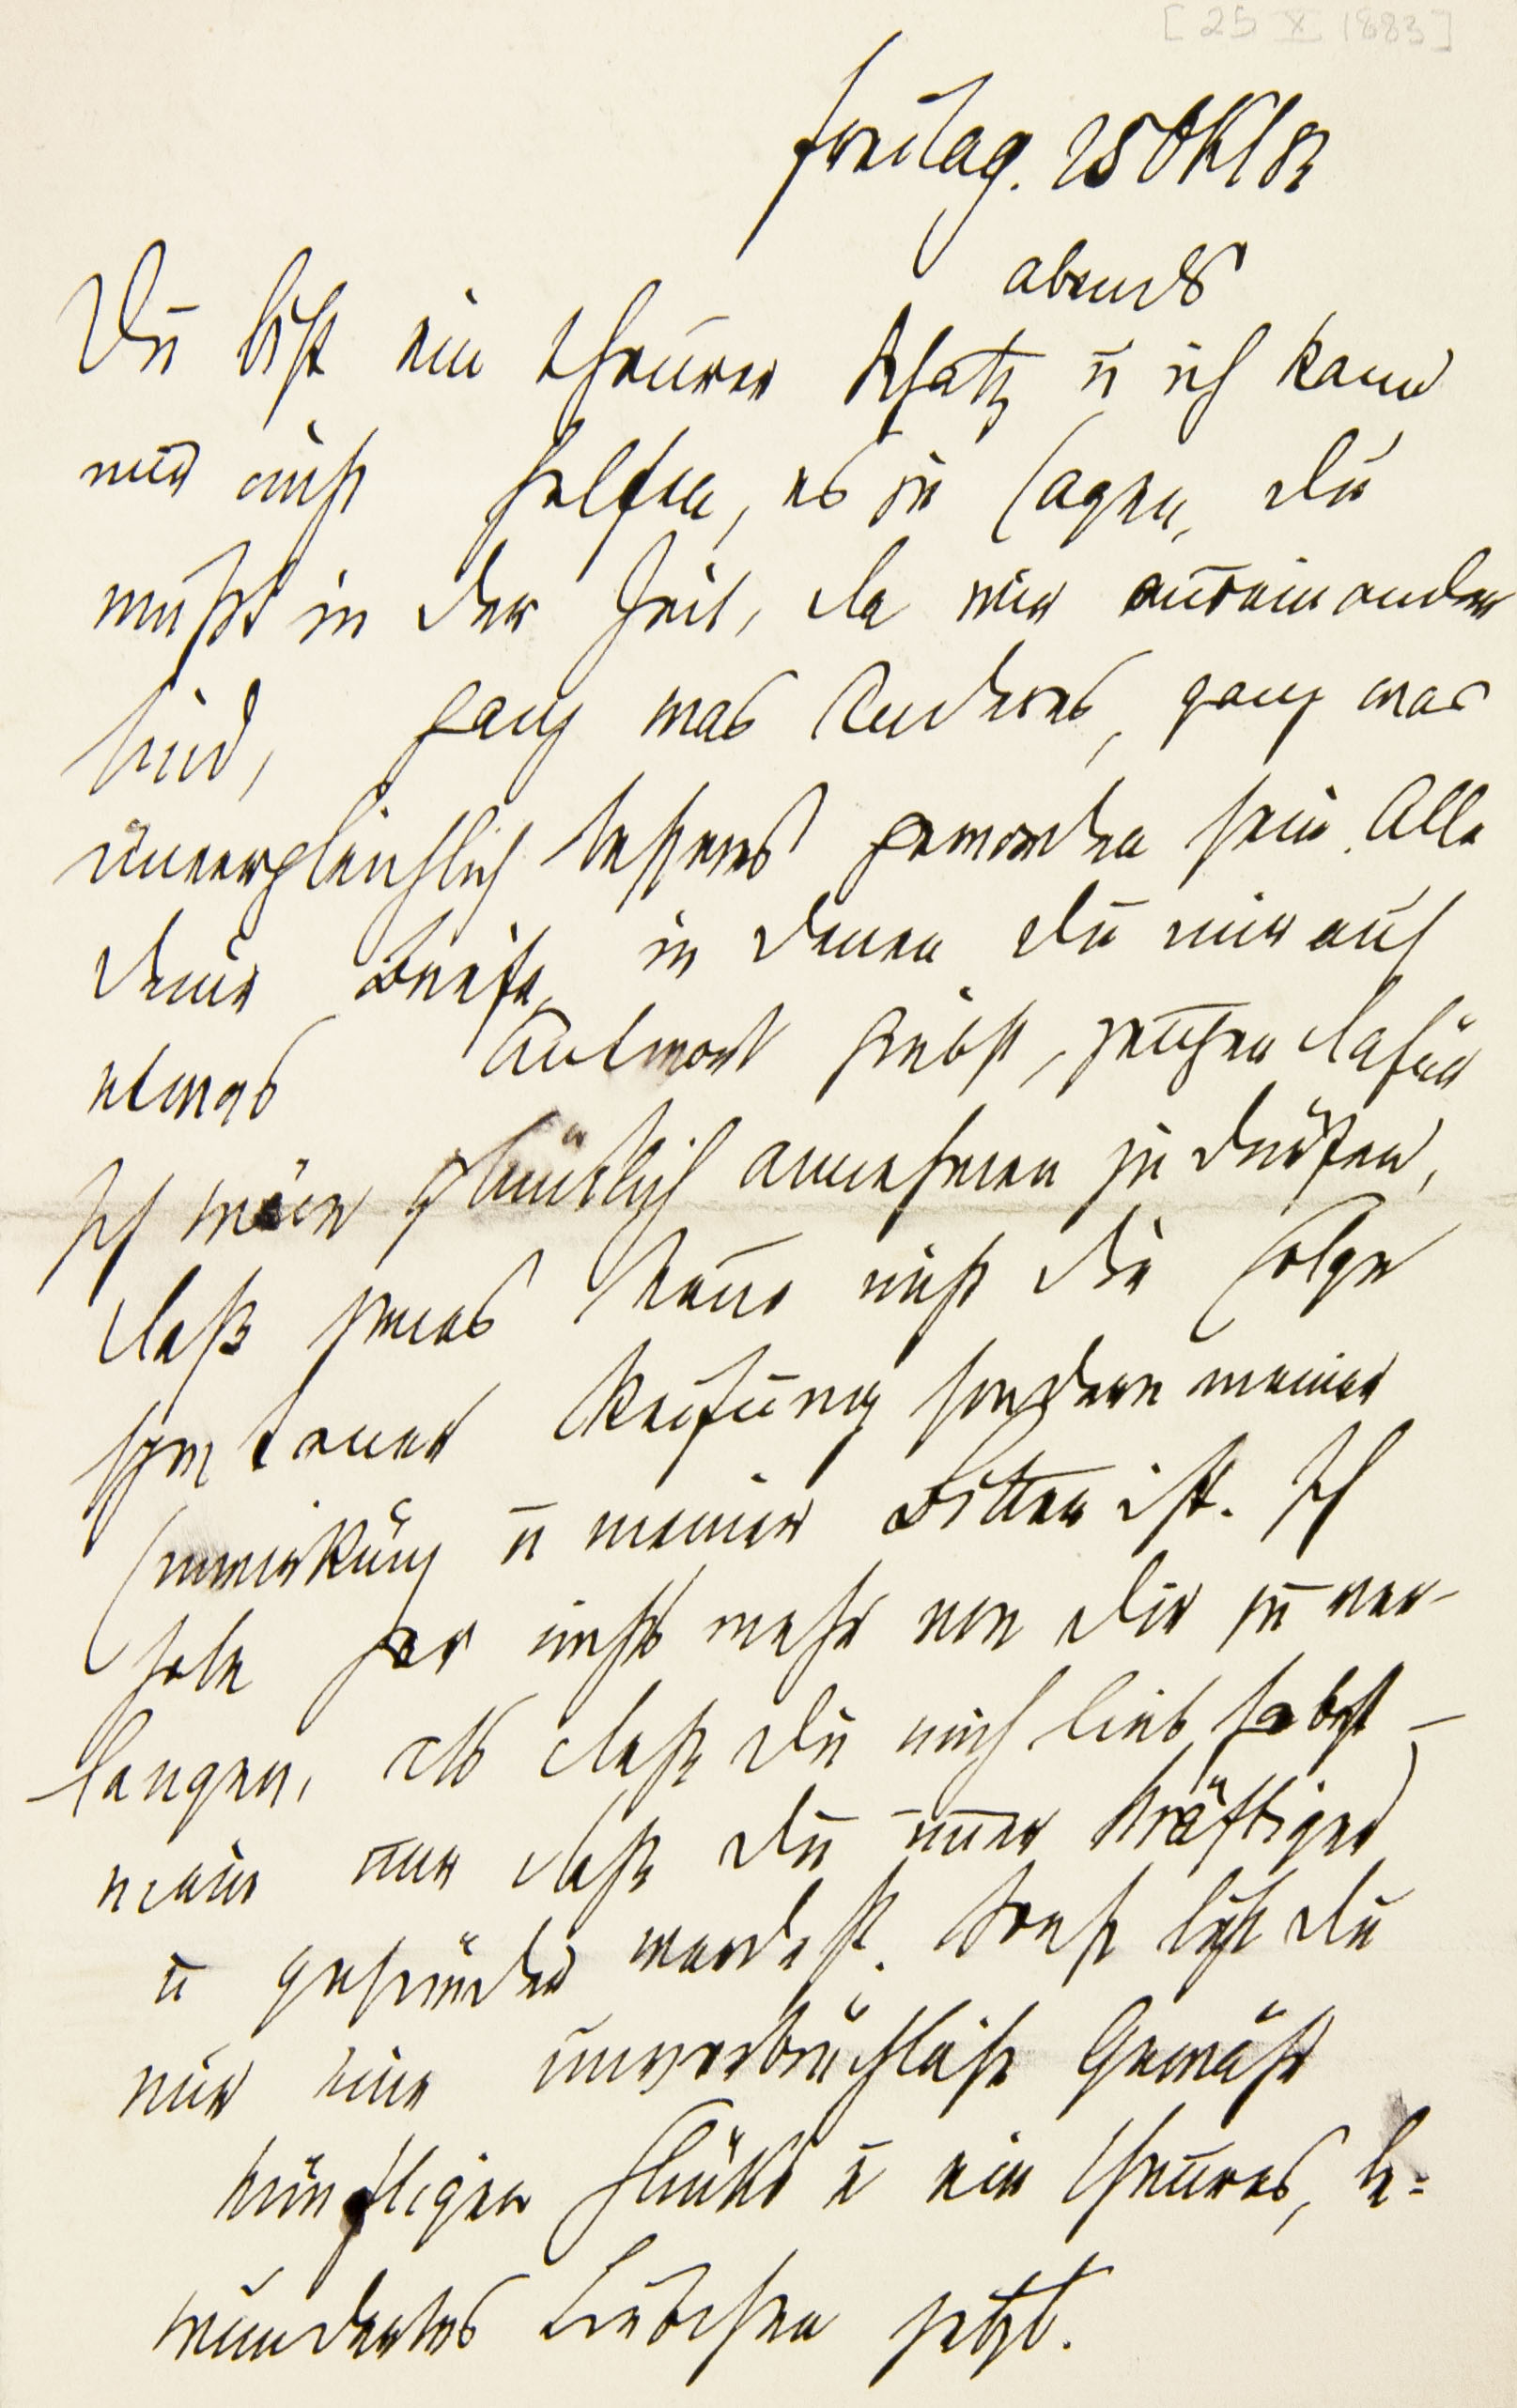 [25 X 1883]
Freitag. 25 Okt 83
abends
Du bist ein theurer Schatz u ich kann
mir nicht helfen, es zu sagen, Du
mußt in der Zeit, da wir auseinander
sind, ganz was Anderes, ganz was
unvergleichlich besseres geworden sein. Alle
Deine Briefe, in denen Du mir auf
etwas Antwort giebst, zeugen dafür
Ich wäre glücklich annehmen zu dürfen,
daß jenes Neue nicht die Folge
spontaner Reifung sondern meiner
Einwirkung u meiner Bitten ist. Ich
habe gar nichts mehr von Dir zu ver-
langen, als daß Du mich lieb habst –
nein nur daß Du immer kräftiger
u gesünder werdest. Sonst bist Du
mir eine unverbrüchliche Gewähr
künftigen Glücks u ein theures, be=
wundertes Liebchen jetzt.